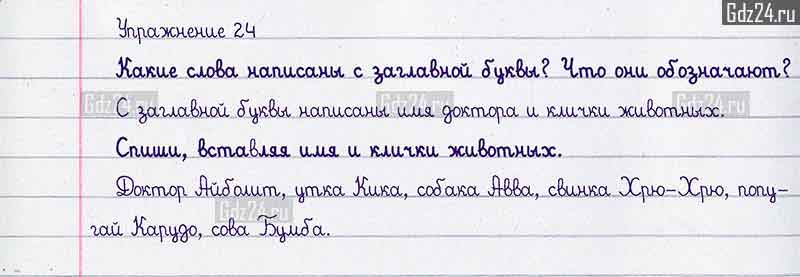 Gdz24.ru
Упражнение 24
Какие слова написаны с заглавной буквы? Что они обозначают?
С заглавной буквы написаны имя доктора и клички животных.
Спиши, вставляя имя и клички животных.
Доктор Айболит, утка Кика, собака Авва, свинка Хрю-Хрю, попу-
гай Карудо, сова Бумба.